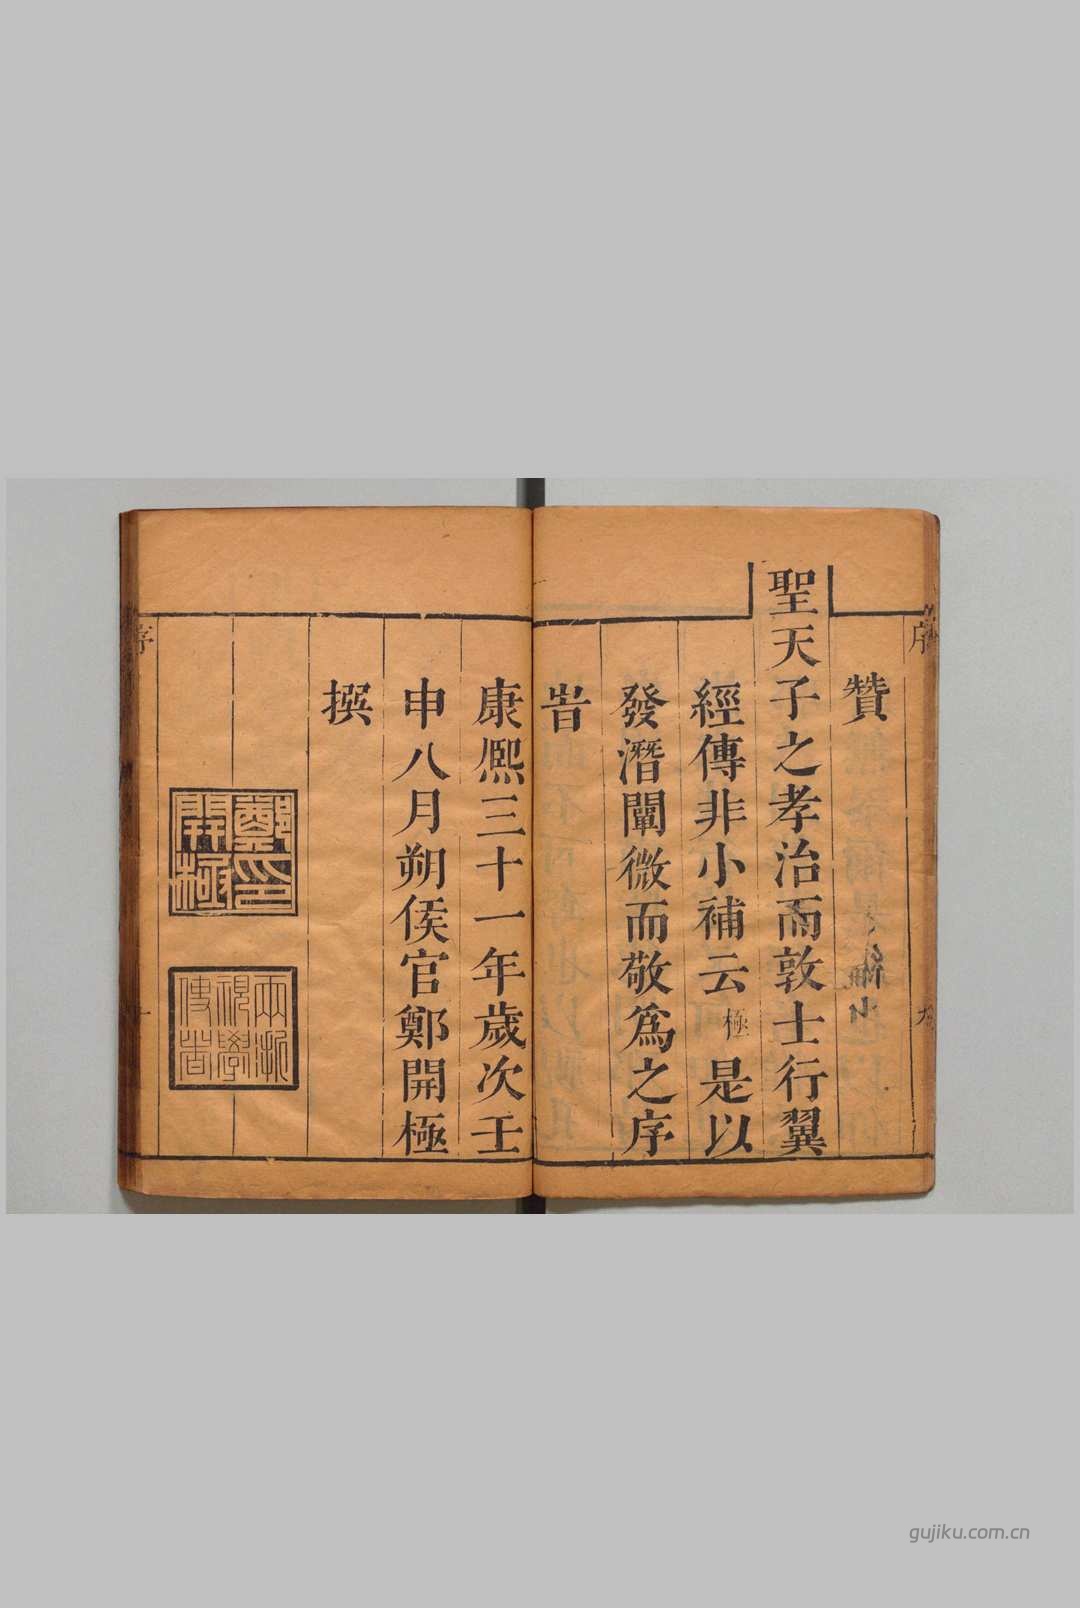 贊
聖天子之孝治而敦士行翼
經傳非小補云極是以
發潛闡微而敬爲之序
旹
康熙三十一年歲次壬
申八月朔侯官鄭開極
撰
序
序
鄭印
開極
兩浙
視學
使者
gujiku.com.cn